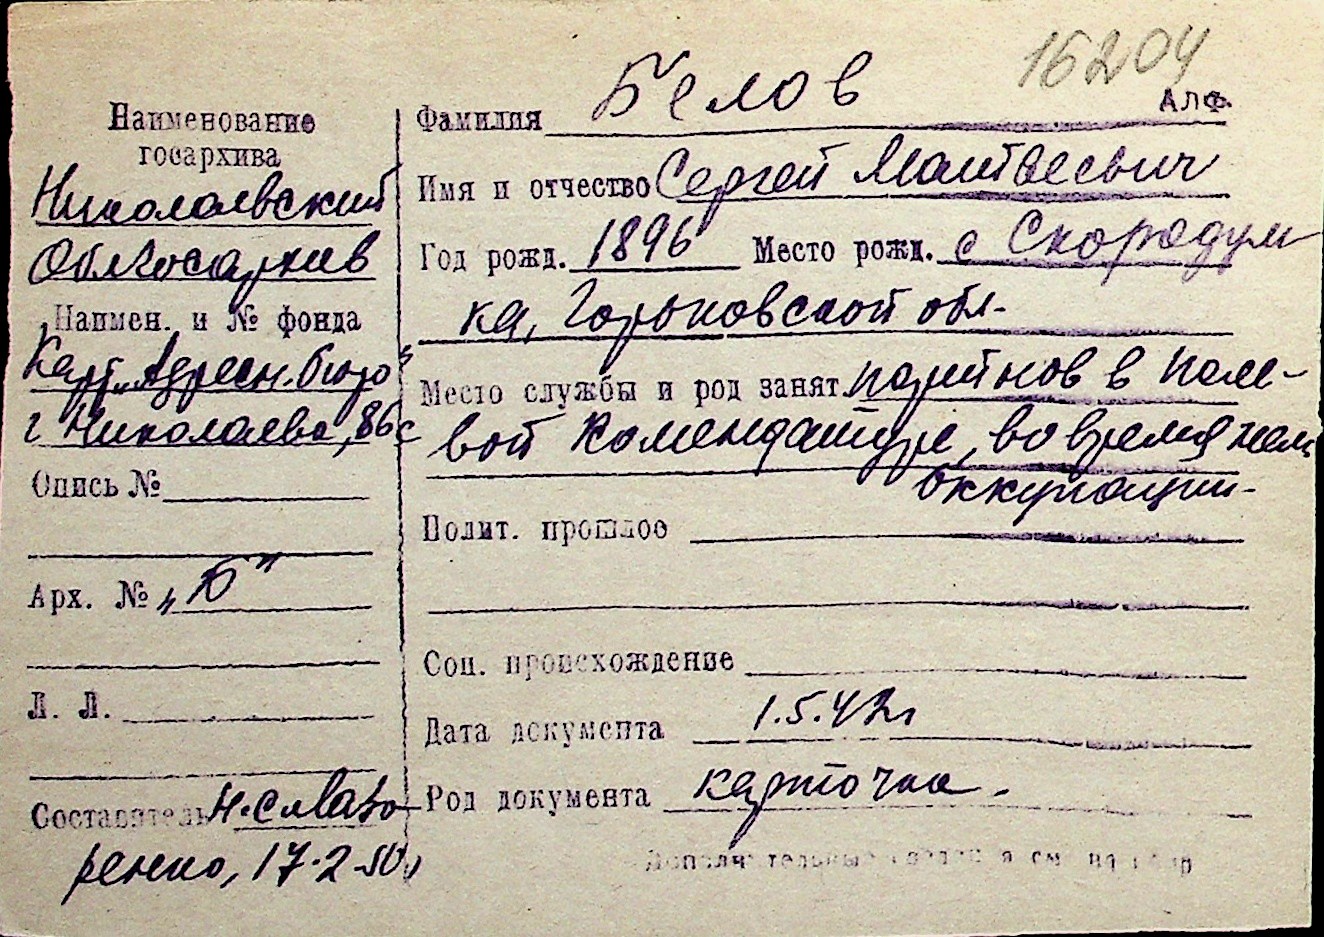 16204
Алф.
Наименование
госархива
Николаевский
Облгосархив
Наимен. и № фонда
Карт. „Адресн. бюро"
г. Николаева, 86с
Опись №
Арх. № „Б"
Л. Л.
Составитель Н. Слабо
ренко, 17.2.50
Фамилия Белов
Имя и отчество Сергей Матвеевич
Год рожд. 1896 Место рожд. с Скородум
ка, Горьковской обл.
Место службы и род занят. портнов в поле-
вой Комендатуре, во время нем
оккупации.
Полит. прошлое
Соц. происхождение
Дата документа 1.5.42г
Род документа карточка.
Дополнительные сведения см. на обор